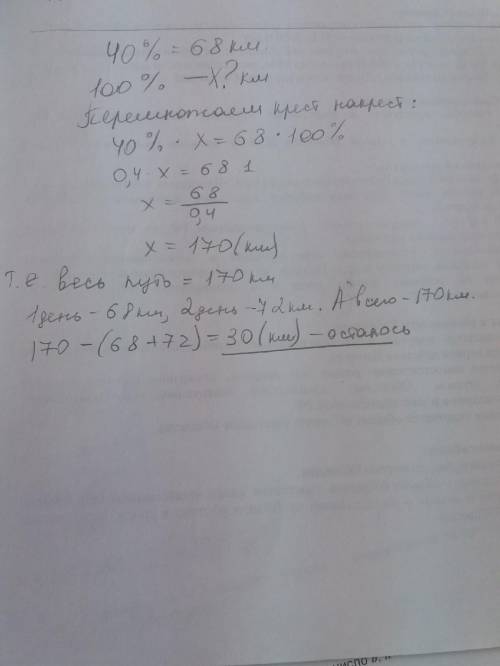 40% = 68 км
100% — x? км
Перемножаем крест накрест:
40% · x = 68 · 100%
0,4 · x = 68 1
x = 68/0,4
x = 170 (км)
т.е. весь путь = 170 км
1 день – 68 км, 2 день – 72 км. А всего – 170 км.
170 – (68 + 72) = 30 (км) – осталось